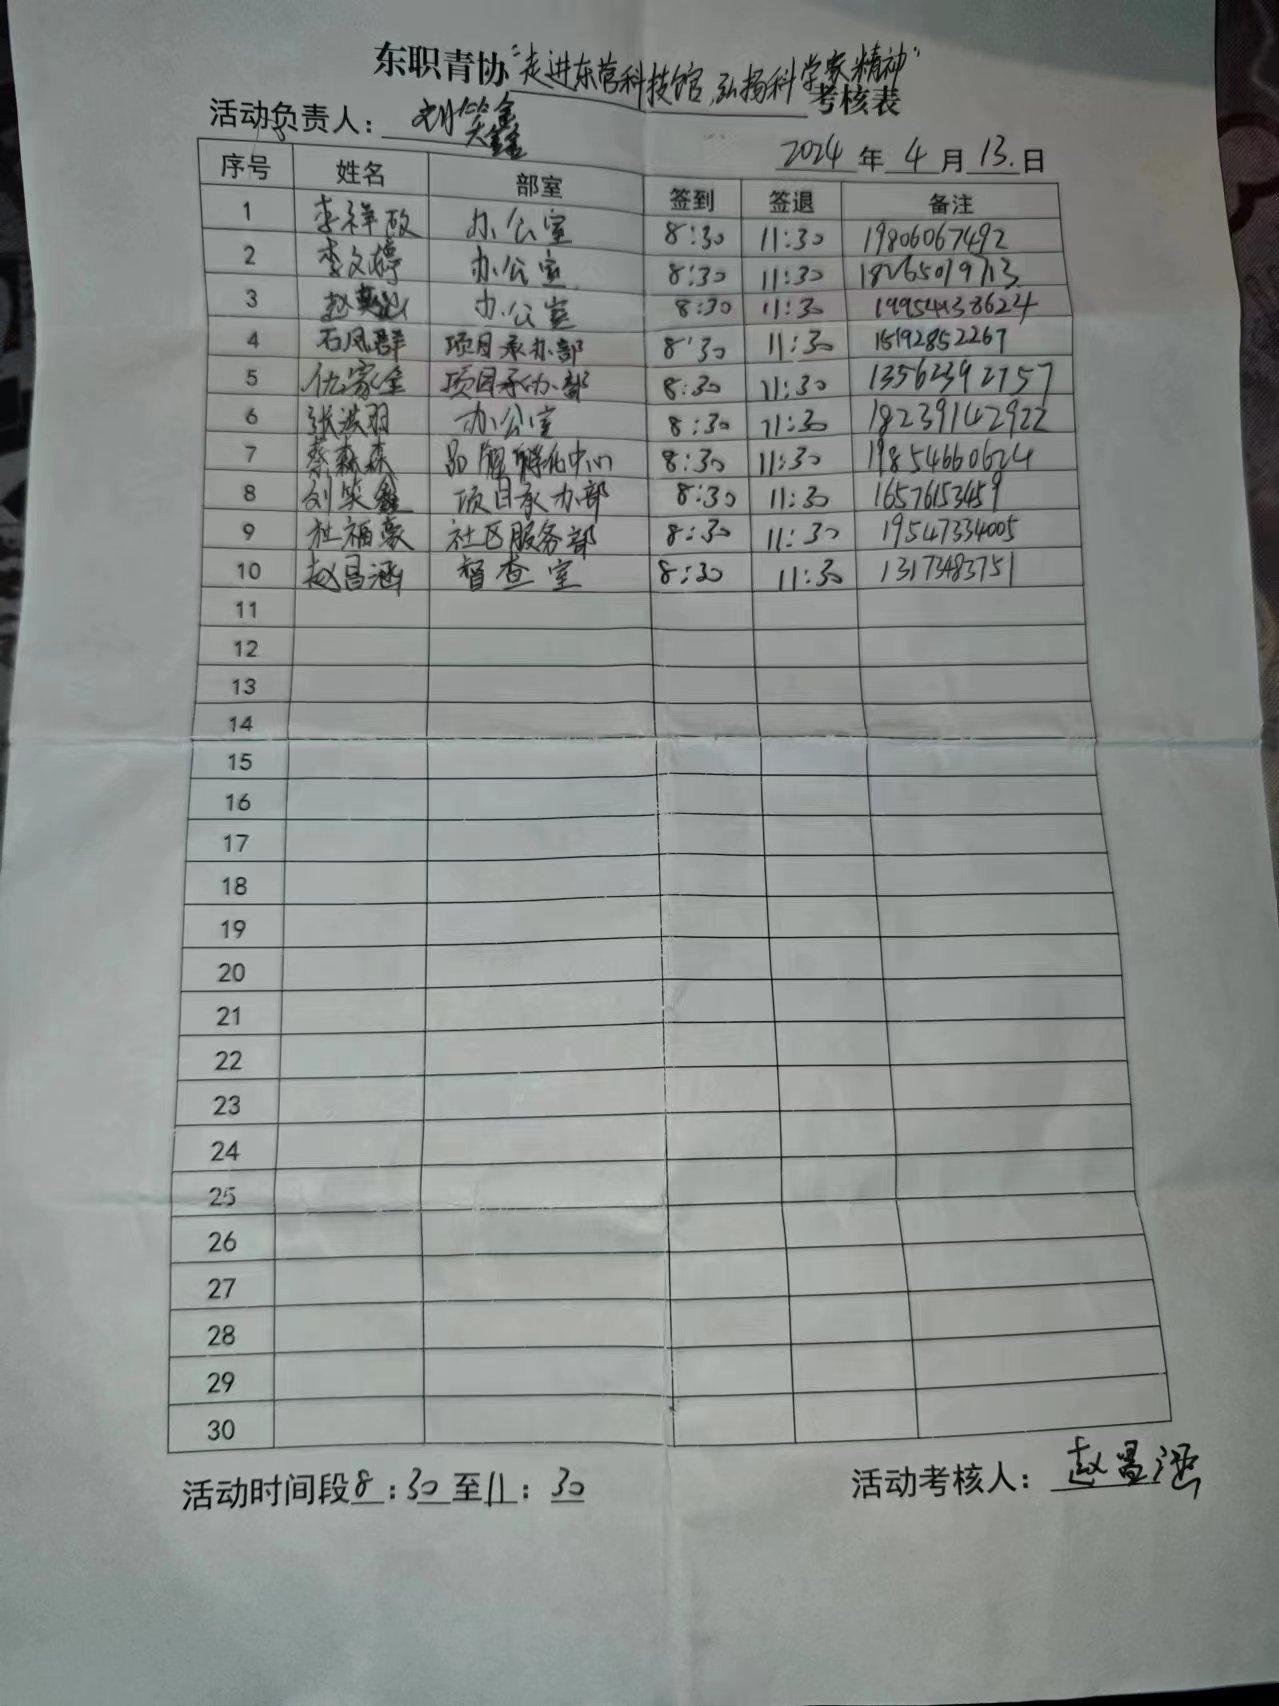 东职青协“走进东营科技馆,弘扬科学家精神”考核表
活动负责人：刘笑鑫
2024年4月13.日
序号 姓名 部室 签到 签退 备注
1 李祥 办公室 8:30 11:30 19806067492
2 李文婷 办公室 8:30 11:30 18265019713
3 赵 办公室 8:30 11:30
4 石凤群 项目承办部 8:30 11:30 15192852267
5 仇家全 项目承办部 8:30 11:30 13562392757
6 张洪羽 办公室 8:30 11:30 18239142922
7 蔡森森 品牌孵化中心 8:30 11:30 19854660624
8 刘笑鑫 项目承办部 8:30 11:30 16576153459
9 杜福豪 社区服务部 8:30 11:30 19547334005
10 赵昌涵 督查室 8:30 11:30 13173483751
11
12
13
14
15
16
17
18
19
20
21
22
23
24
25
26
27
28
29
30
活动时间段8:30至11:30 活动考核人：赵昌涵